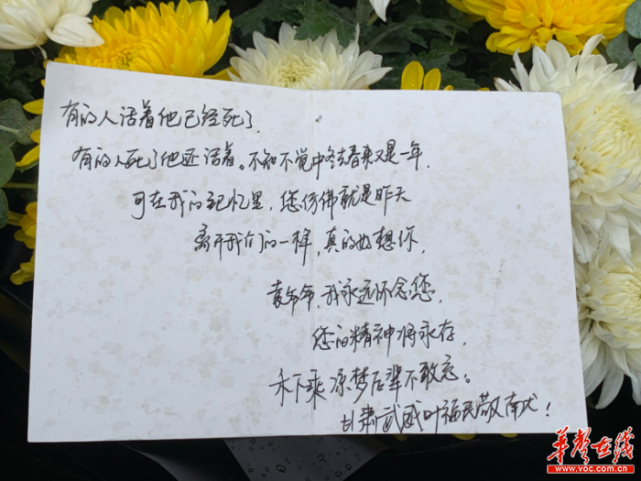 有的人活着他已经死了,
有的人死了他还活着。不知不觉中冬去春来又是一年,
可在我的记忆里,您仿佛就是昨天
离开我们的一样,真的好想你,
袁爷爷,我永远怀念您,
您的精神将永存,
禾下乘凉梦后辈不敢忘。
甘肃武威叶福民敬献!
华声在线
www.voc.com.cn